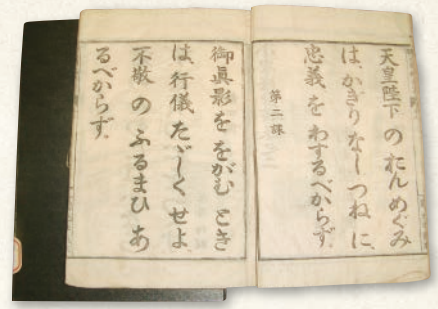 天皇陛下のおんめぐみ
は、かぎりなし。つねに、
忠義をわするべからず。
第二課
御眞影ををがむとき
は、行儀たゞしくせよ。
不敬のふるまひあ
るべからず。